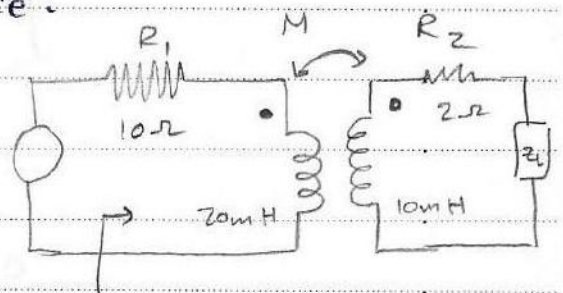 re.
R1 M R2
10Ω 2Ω
ZL
20mH 10mH